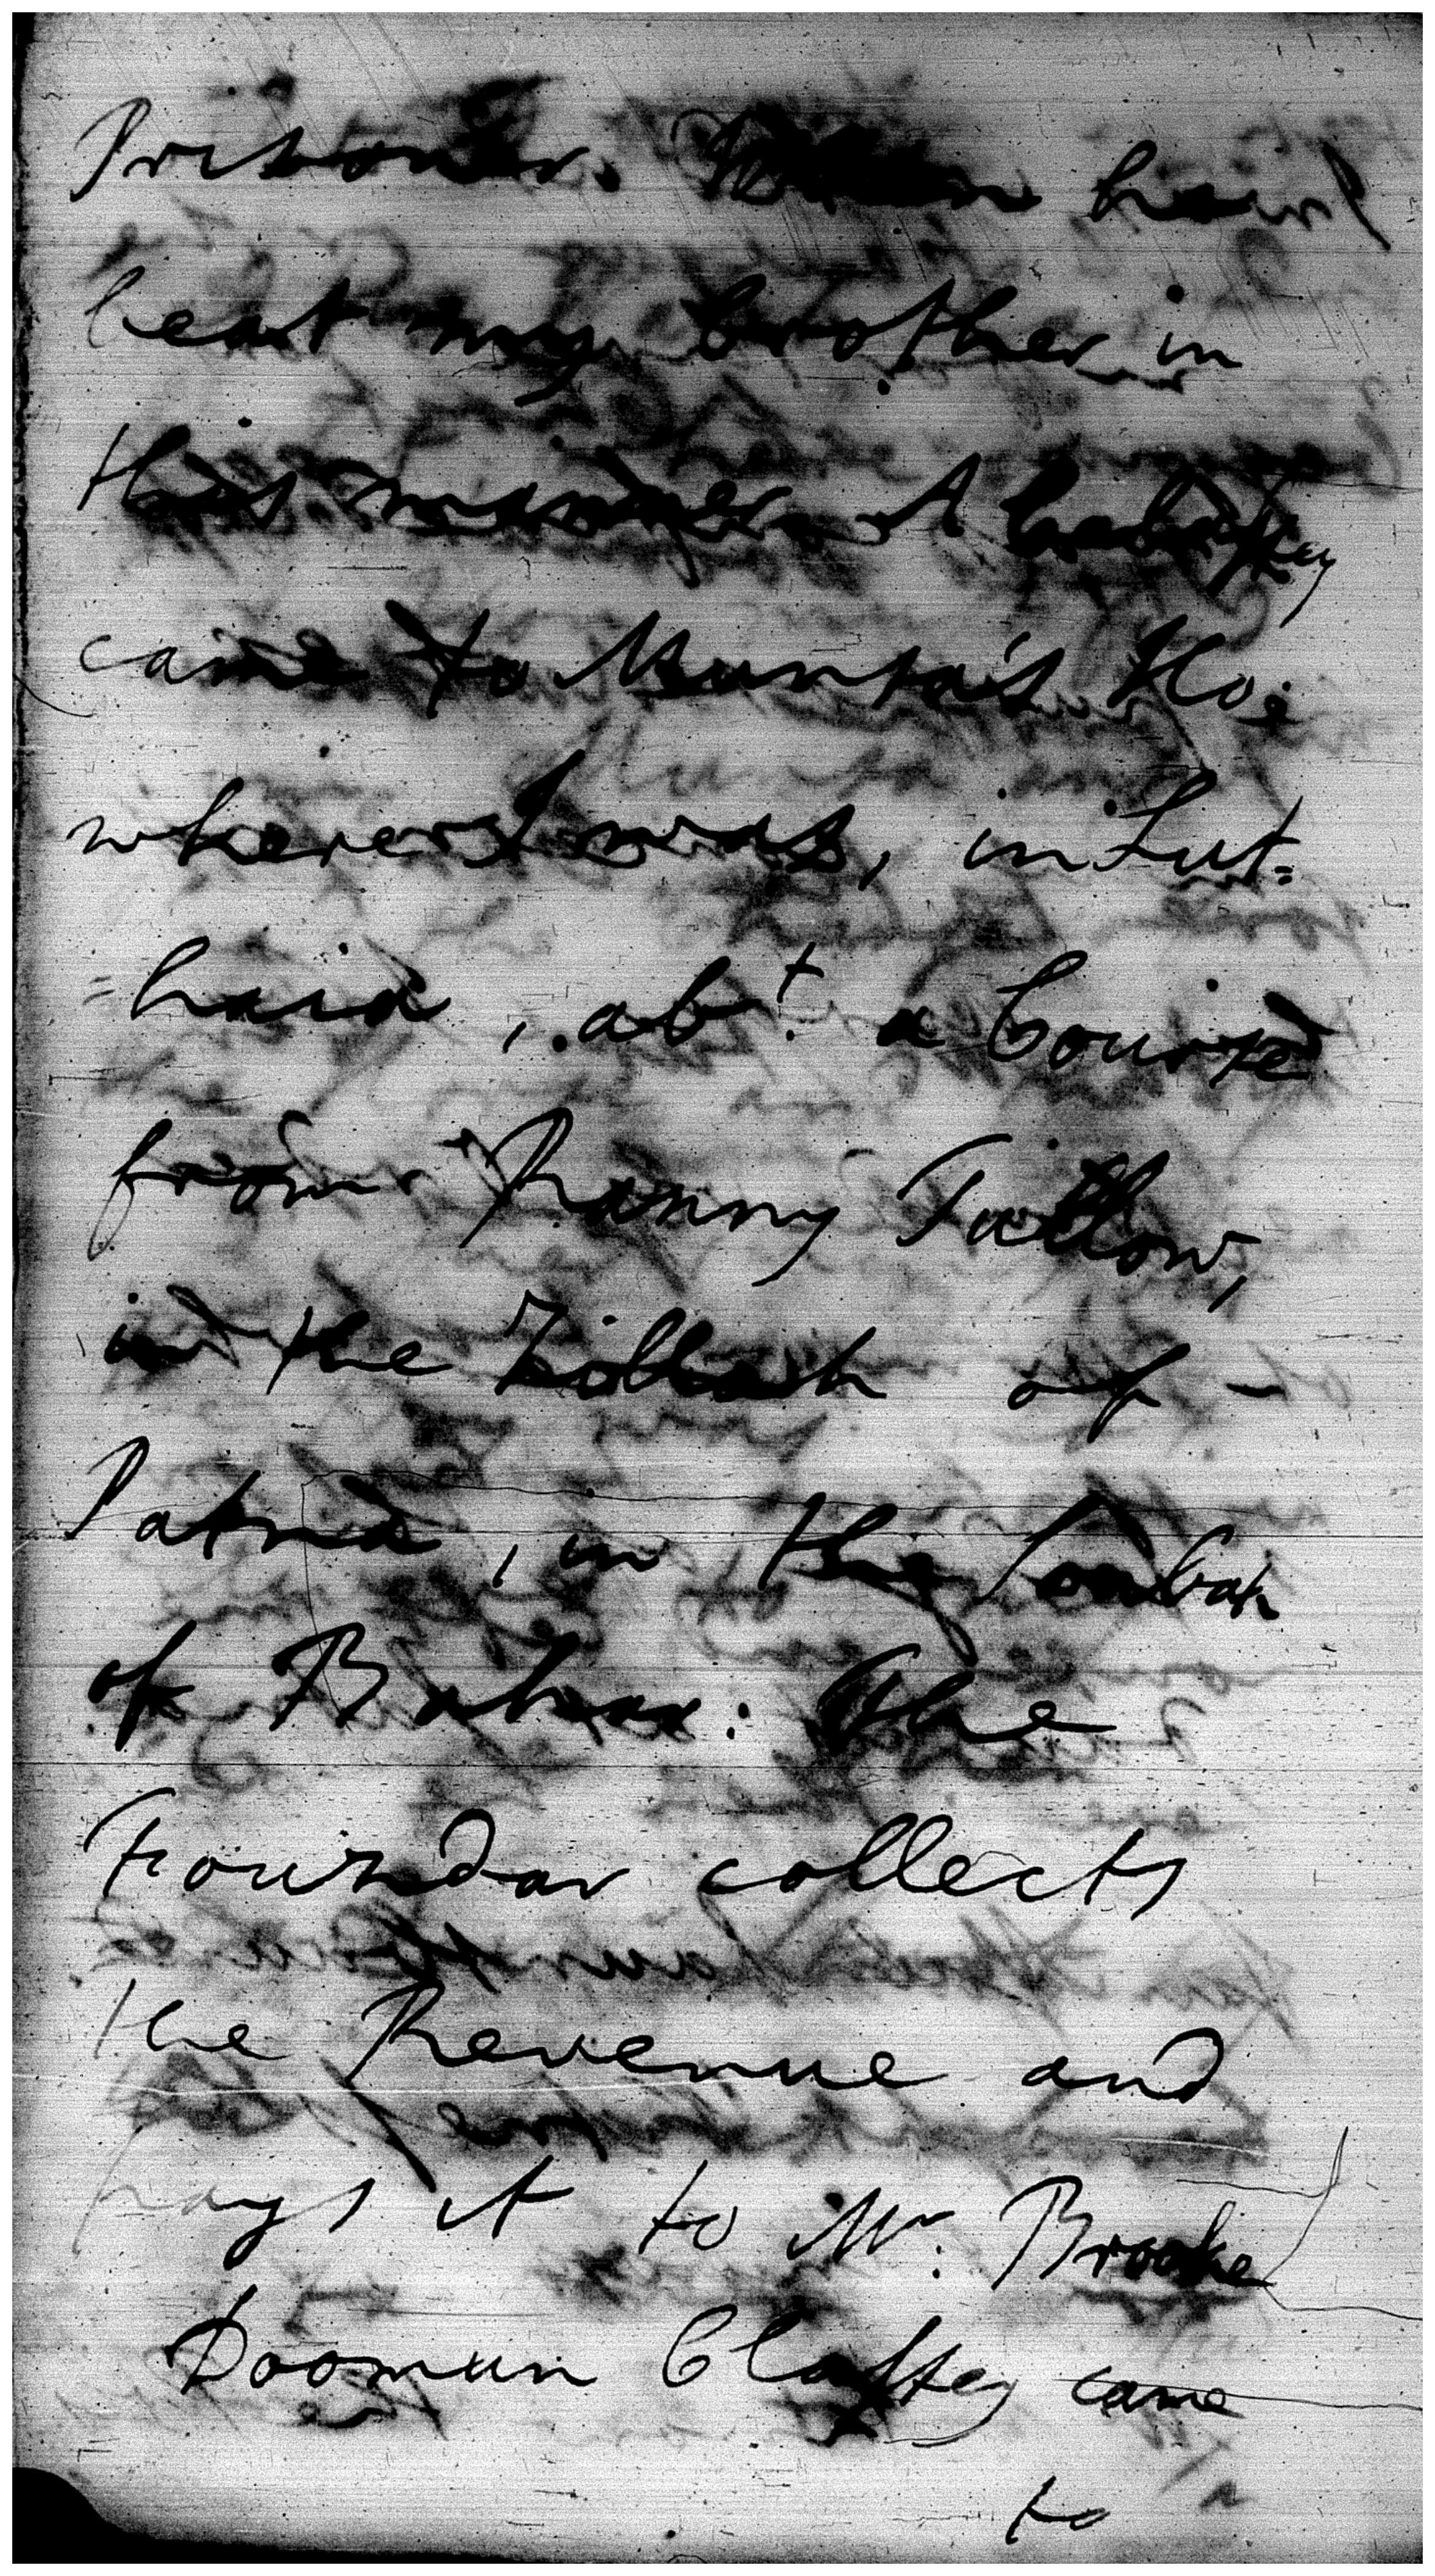 Prisoner.
beat my brother in
this manner. A
came to Munsa's Ho.
where I was, in Lut=
=haia, abt. a Course
from Ranny Tallow,
in the Zillah of -
Patna, in the Soubah
of Bahar: The
Fouzdar collects
the Revenue and
pays it to Mr. Brooke
Doomun Claffey came
to